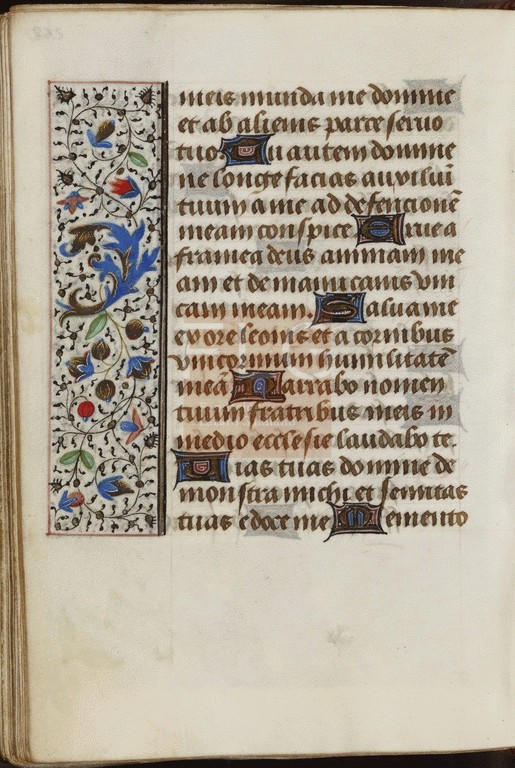 meis munda me domine
et ab alienis parce servo
tuo. Tu autem domine
ne longe facias auxiliū
tuum a me ad defencionē
meam conspice Erue a
framea deus animam me
am et de manu canis vni
cam meam. Salua me
ex ore leonis et a cornibus
vnicornium humilitatē
meā Narrabo nomen
tuum fratribus meis in
medio ecclesie laudabo te.
Vias tuas domine de
monstra michi et semitas
tuas edoce me Memento